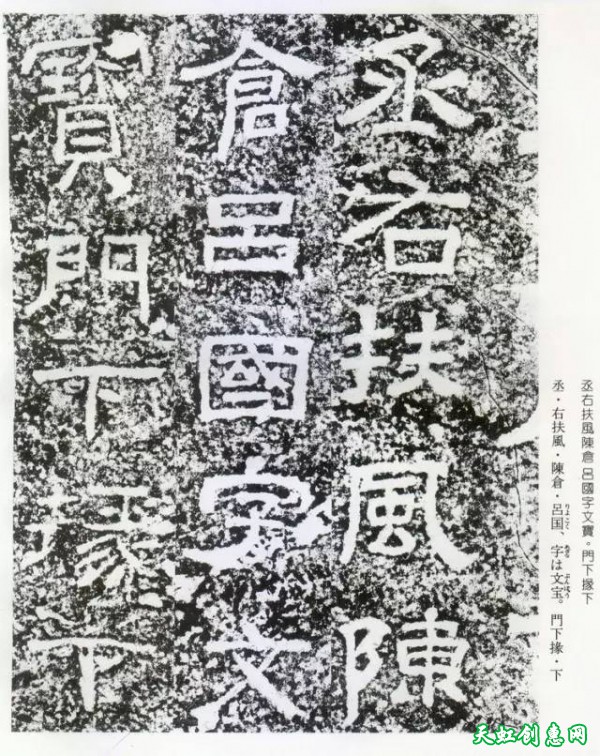 丞右扶風陳
倉呂國字文
寶門下掾下
丞右扶風陳倉呂國字文寶。門下掾下
丞・右扶風・陳倉・呂国、字は文宝。門下掾・下
天虹创意网